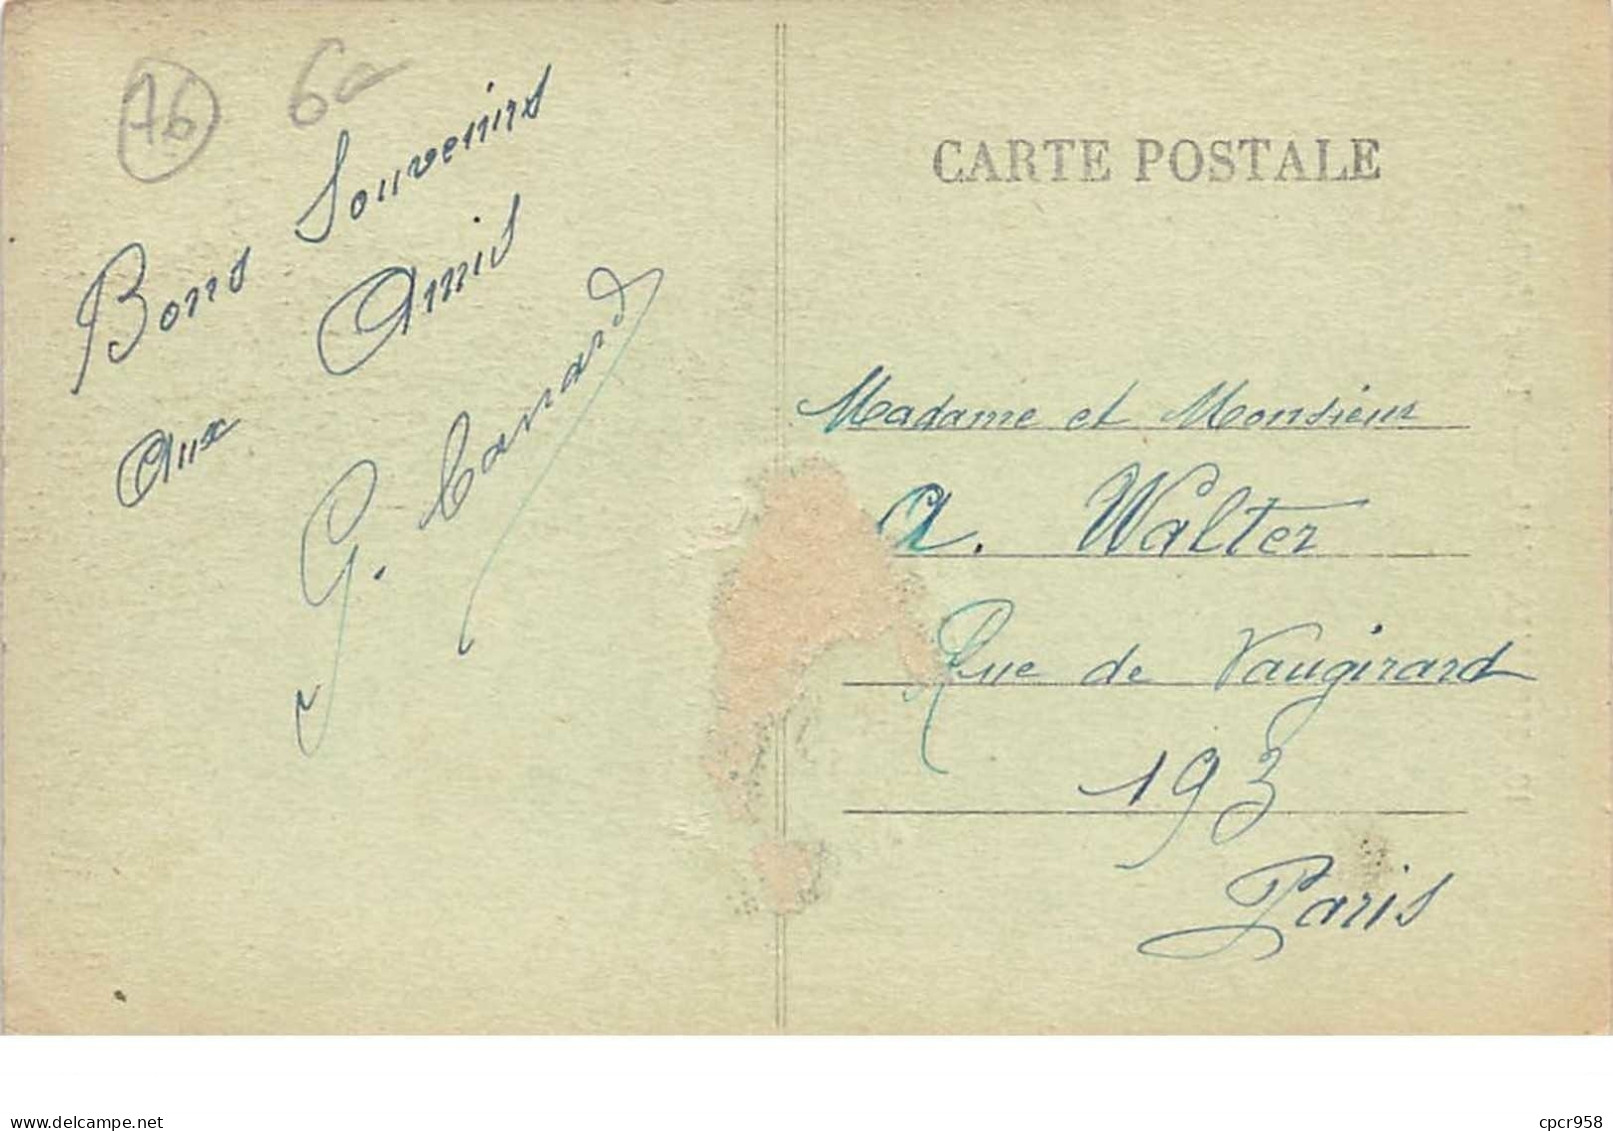 76 6a
Bons Souvenirs
aux Amis
G. Canard
CARTE POSTALE
Madame et Monsieur
A. Walter
Rue de Vaugirard
193
Paris
www.delcampe.net
cpcr958